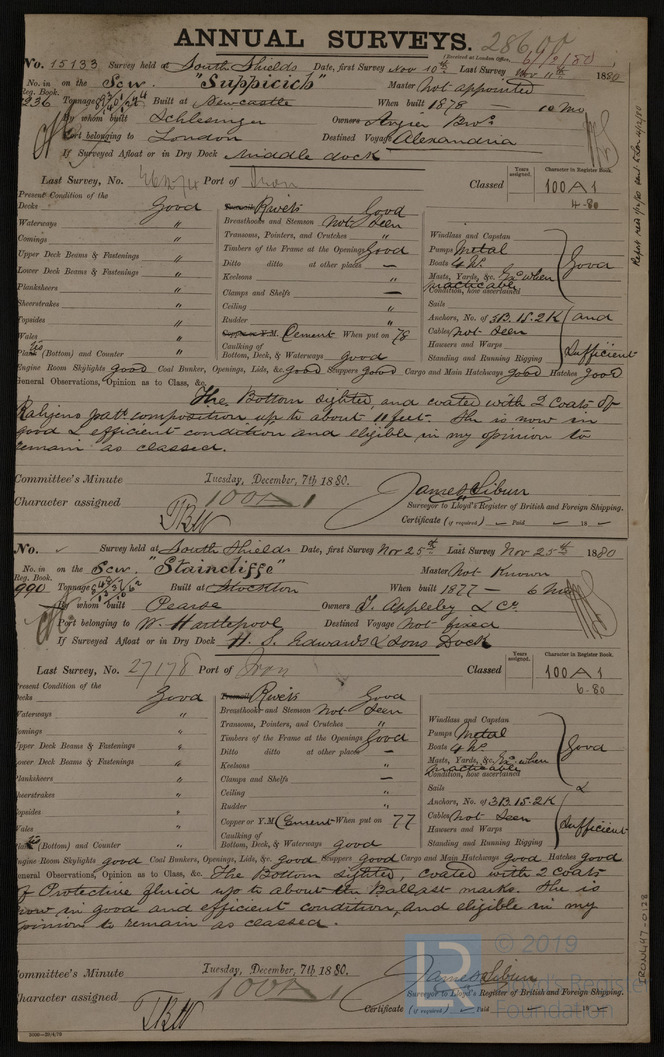 ANNUAL SURVEYS.
Received at London Office,
No. 15133 Survey held at South Shields Date, first Survey Nov 10th Last Survey Nov 1880
No. in Reg. Book. on the Scw. "Suppicich" Master Not appointed
236 Tonnage Built at Newcastle When built 1878 10 Mo
By whom built Schlesinger Owners Bros
Port belonging to London Destined Voyage Alexandria
If Surveyed Afloat or in Dry Dock Middle dock
Last Survey, No. Port of Iron Classed Years assigned. Character in Register Book. 100 A 1
4-80
Present Condition of the
Decks Good
Waterways "
Comings "
Upper Deck Beams & Fastenings "
Lower Deck Beams & Fastenings "
Planksheers "
Sheerstrakes "
Topsides "
Wales "
Plates (Bottom) and Counter "
Treenails Rivets Good
Breasthooks and Stemson Not Seen
Transoms, Pointers, and Crutches "
Timbers of the Frame at the Openings Good
Ditto ditto at other places —
Keelsons "
Clamps and Shelfs —
Ceiling "
Rudder "
Copper or Y.M. Cement When put on 78
Caulking of
Bottom, Deck, & Waterways good
Windlass and Capstan
Pumps Metal
Boats 4
Masts, Yards, &c. when practicable
Condition, how ascertained
Sails
Anchors, No. of 3B.1S.2K
Cables Not Seen
Hawsers and Warps
Standing and Running Rigging
Good and Sufficient
Engine Room Skylights good Coal Bunker, Openings, Lids, &c. Good Scuppers Good Cargo and Main Hatchways Good Hatches Good
General Observations, Opinion as to Class, &c.
The Bottom sighted, and coated with 2 Coats of
patt composition up to about 11 feet. She is now in
good & efficient condition and eligible in my opinion to
remain as classed.
Committee's Minute Tuesday, December, 7th 1880.
Character assigned 100 A 1
James Sibun
Surveyor to Lloyd's Register of British and Foreign Shipping.
Certificate (if required) — Paid — 18 —
No. Survey held at South Shields Date, first Survey Nov 25th Last Survey Nov 25th 1880
No. in Reg. Book. on the Scw. "Staincliffe" Master Not Known
990 Tonnage Built at Stockton When built 1877 — 6 Mo
By whom built Pearse Owners T. Appleby & Co.
Port belonging to W. Hartlepool Destined Voyage Not fixed
If Surveyed Afloat or in Dry Dock H. S. Edwards & Sons Dock
Last Survey, No. 27178 Port of Iron Classed Years assigned. Character in Register Book. 100 A 1
6-80
Present Condition of the
Decks Good
Waterways "
Comings "
Upper Deck Beams & Fastenings "
Lower Deck Beams & Fastenings "
Planksheers "
Sheerstrakes "
Topsides "
Wales "
Plates (Bottom) and Counter "
Treenails Rivets Good
Breasthooks and Stemson Not Seen
Transoms, Pointers, and Crutches "
Timbers of the Frame at the Openings Good
Ditto ditto at other places —
Keelsons "
Clamps and Shelfs —
Ceiling "
Rudder "
Copper or Y.M. Cement When put on 77
Caulking of
Bottom, Deck, & Waterways good
Windlass and Capstan
Pumps Metal
Boats 4
Masts, Yards, &c. when practicable
Condition, how ascertained
Sails
Anchors, No. of 3B.1S.2K
Cables Not Seen
Hawsers and Warps
Standing and Running Rigging
Good & Sufficient
Engine Room Skylights good Coal Bunkers, Openings, Lids, &c. Good Scuppers Good Cargo and Main Hatchways Good Hatches Good
General Observations, Opinion as to Class, &c. The Bottom sighted, coated with 2 coats
of Protective fluid up to about the Ballast marks. She is
now in good and efficient condition, and eligible in my
opinion to remain as classed.
Committee's Minute Tuesday, December, 7th 1880.
Character assigned 100 A 1
James Sibun
Surveyor to Lloyd's Register of British and Foreign Shipping.
Certificate (if required) — Paid — 18 —
© 2019
Lloyd's Register
Foundation